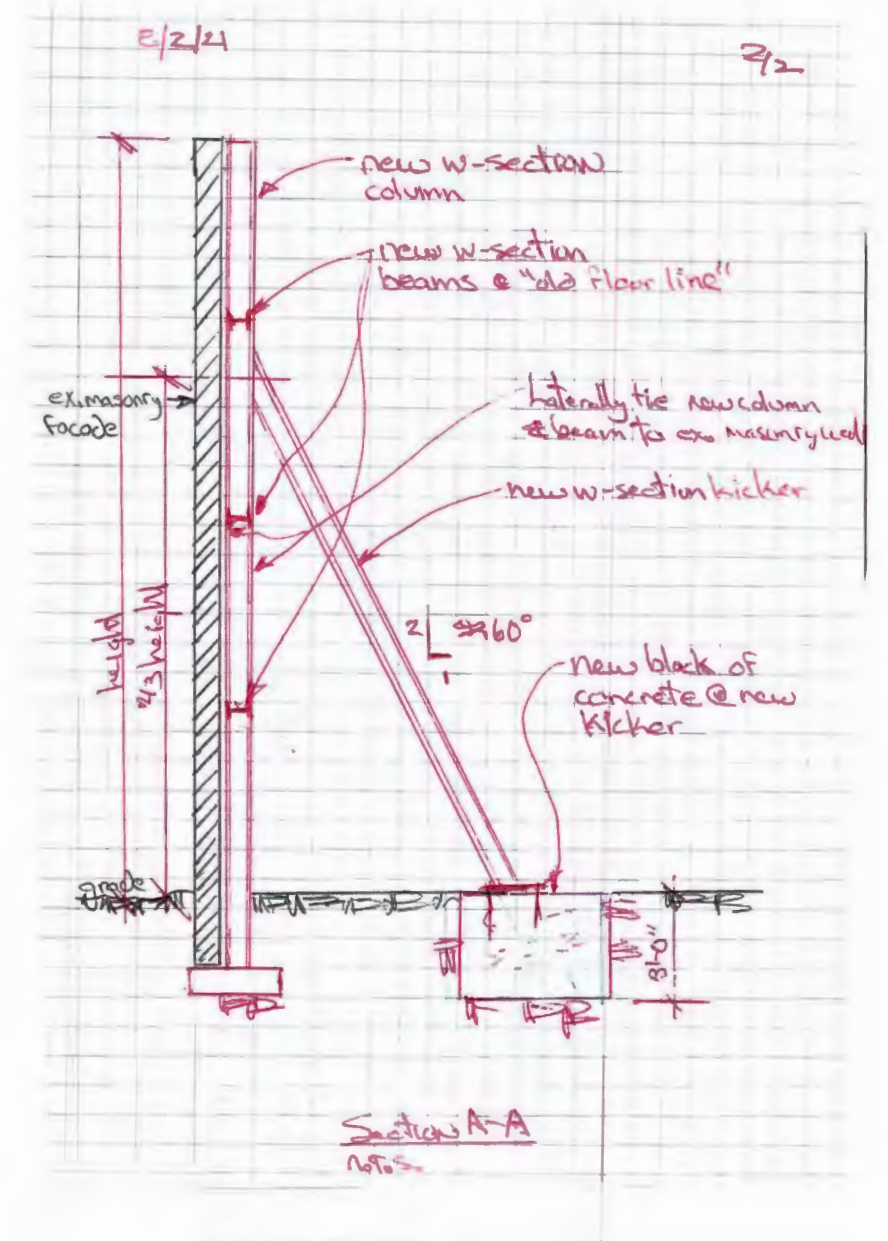 8/2/21
2/2
new w-section
column
new w-section
beams @ "old floor line"
ex. masonry
facade
Laterally tie new column
& beam to ex. masonry wall
new w-section kicker
height
2/3 height
2
60°
1
new block of
concrete @ new
kicker
grade
3'-0"
Section A-A
N.T.S.